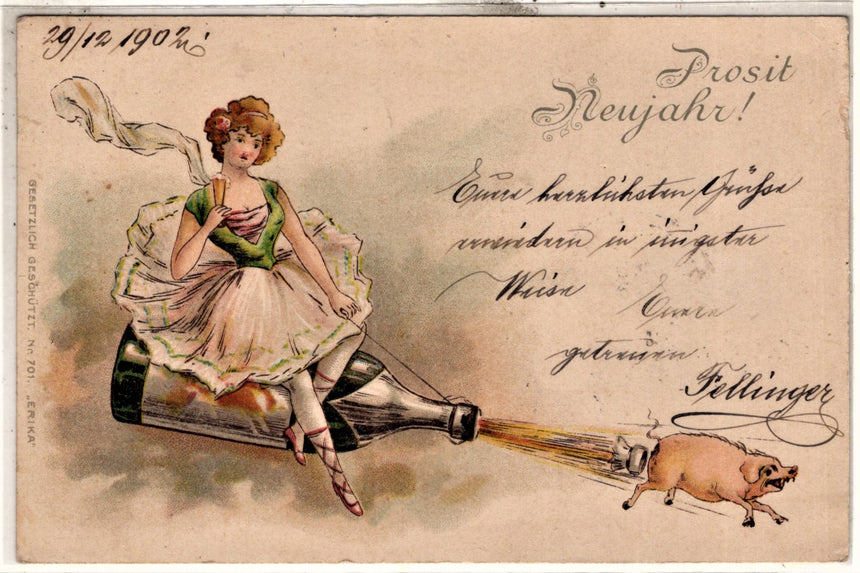 29/12 1902
Prosit
Neujahr!
Euere herzlichsten Grüße
erwiedern in inigster
Weise Euere
getreuen
Fellinger
GESETZLICH GESCHÜTZT. No 701. „ERIKA"